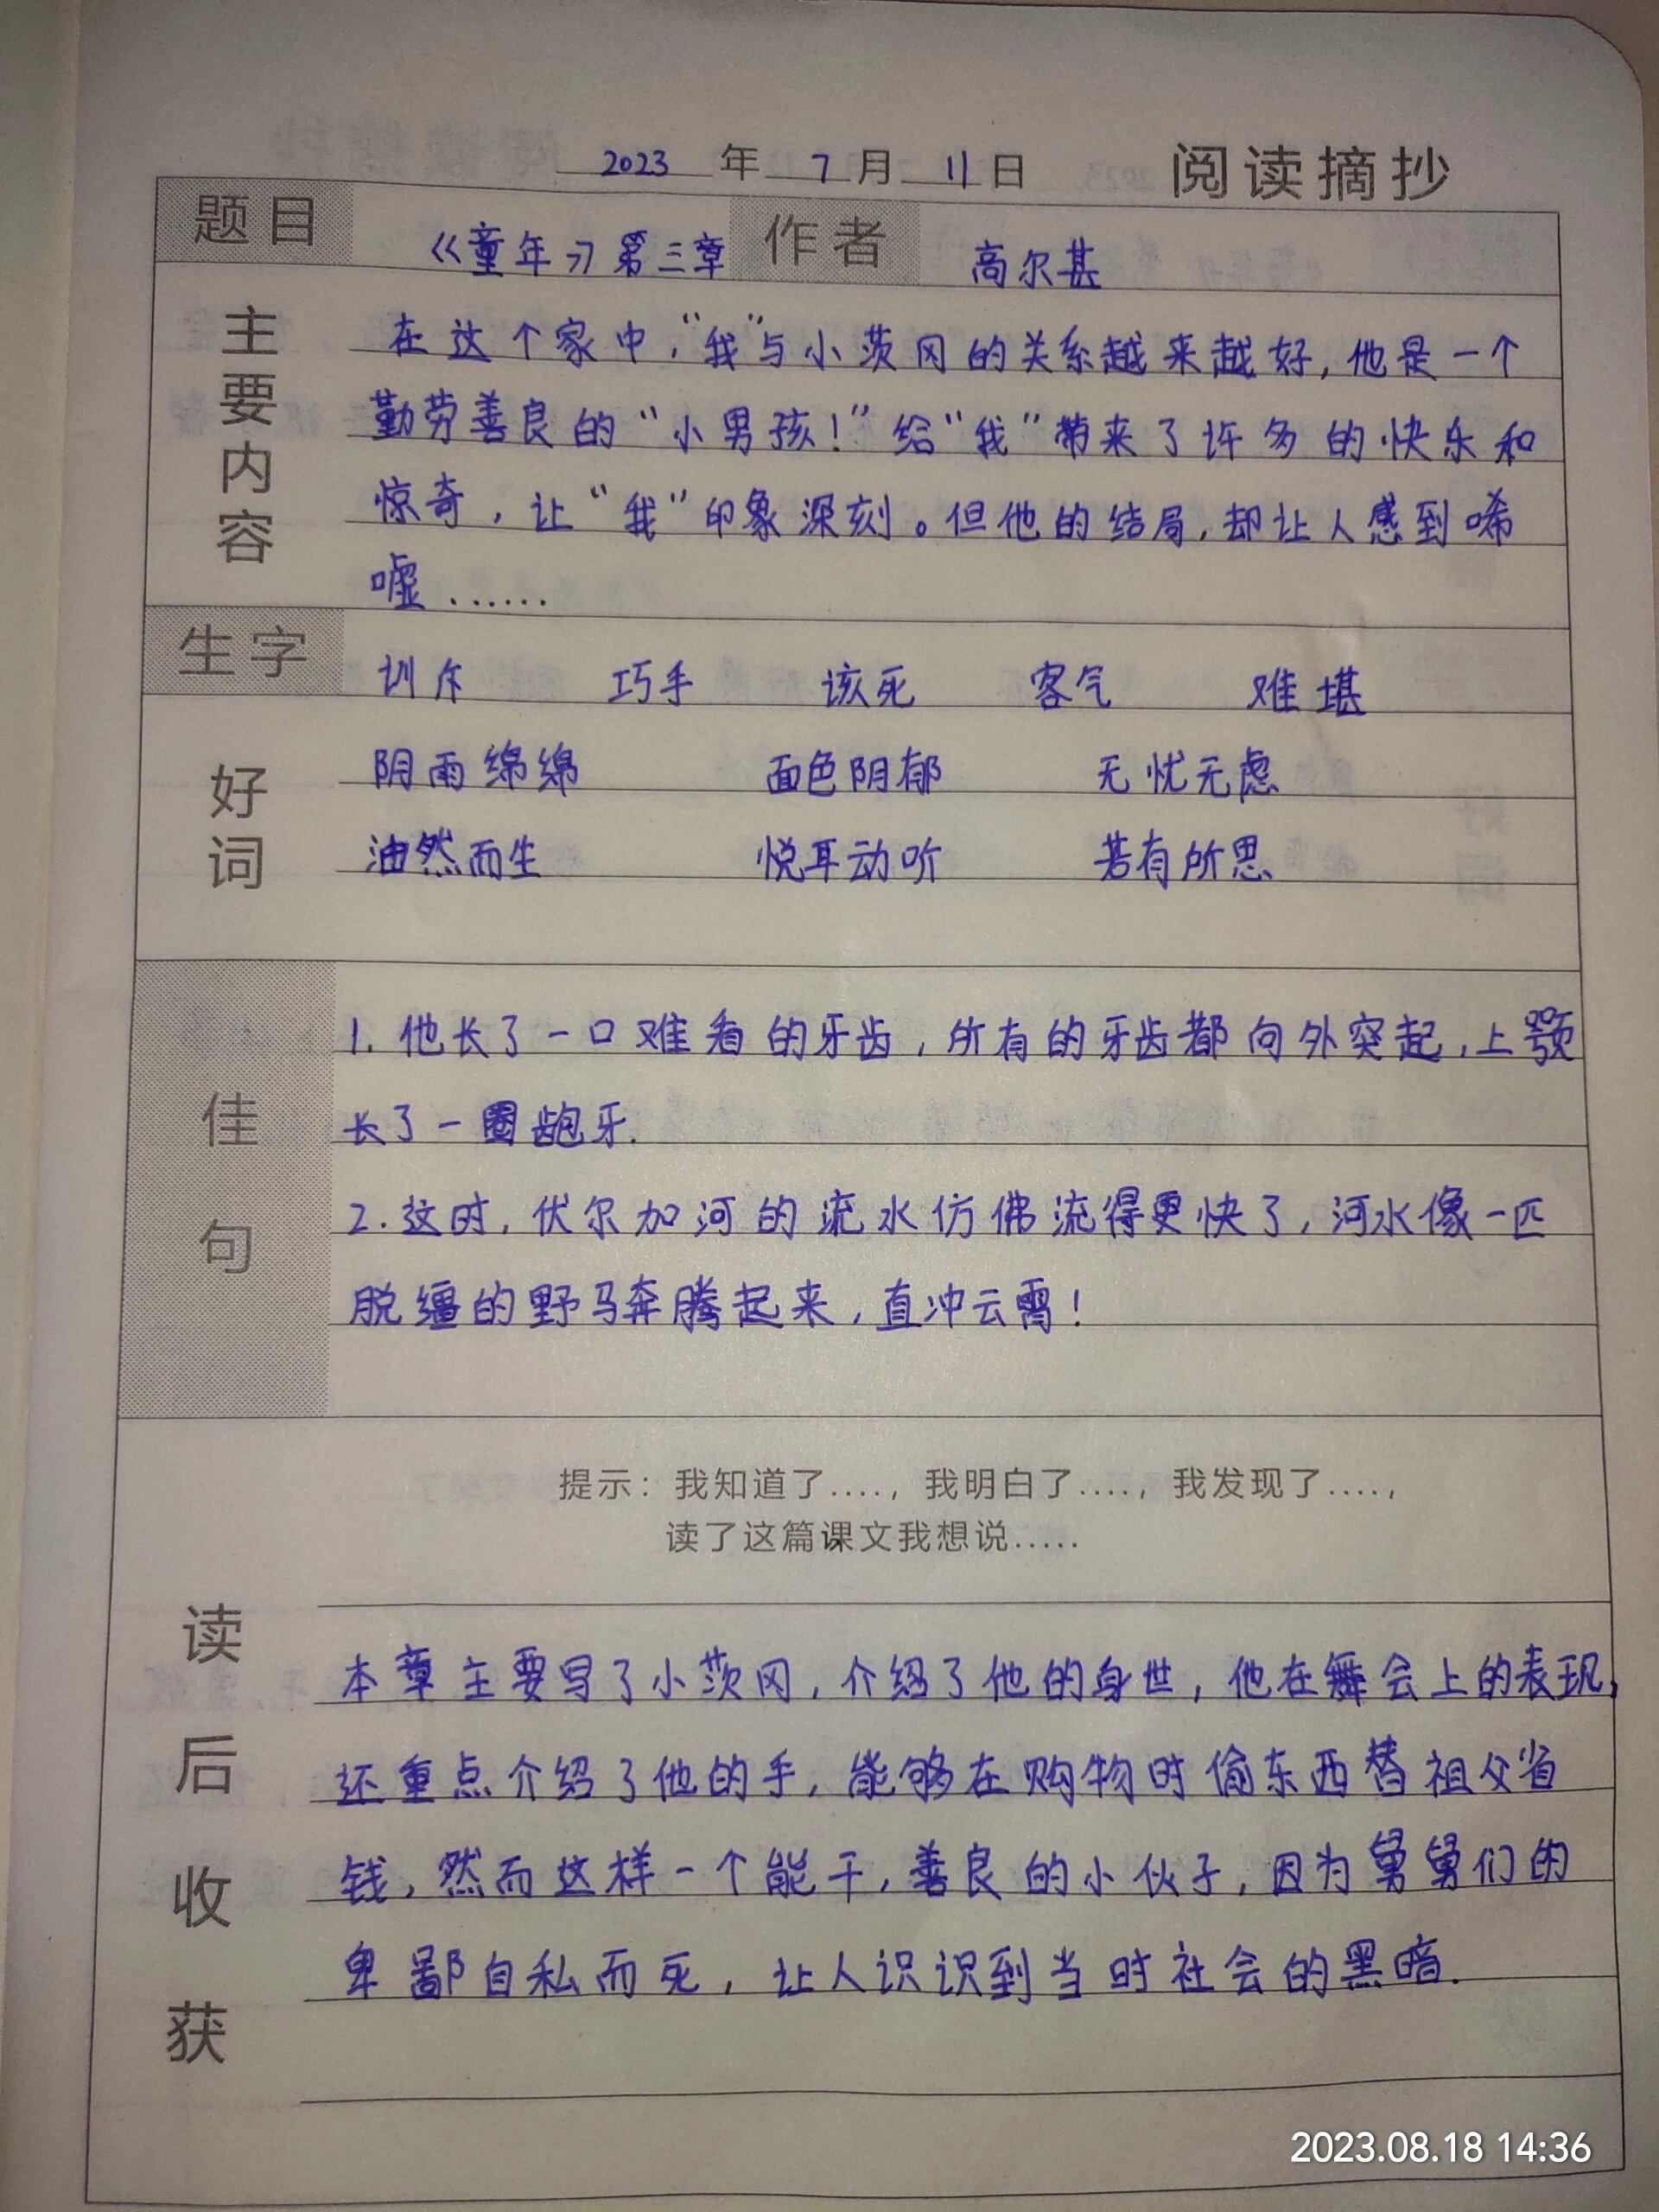 2023 年 7 月 11 日 阅读摘抄
题目 《童年》第三章 作者 高尔甚
主要内容
在这个家中，“我”与小茨冈的关系越来越好，他是一个
勤劳善良的“小男孩！”给“我”带来了许多的快乐和
惊奇，让“我”印象深刻。但他的结局，却让人感到唏
嘘……
生字 训斥 巧手 该死 客气 难堪
好词
阴雨绵绵 面色阴郁 无忧无虑
油然而生 悦耳动听 若有所思
佳句
1. 他长了一口难看的牙齿，所有的牙齿都向外突起，上颚
长了一圈龅牙.
2. 这时，伏尔加河的流水仿佛流得更快了，河水像一匹
脱缰的野马奔腾起来，直冲云霄！
提示：我知道了....，我明白了....，我发现了....，
读了这篇课文我想说.....
读后收获
本章主要写了小茨冈，介绍了他的身世，他在舞会上的表现，
还重点介绍了他的手，能够在购物时偷东西替祖父省
钱，然而这样一个能干，善良的小伙子，因为舅舅们的
卑鄙自私而死，让人识识到当时社会的黑暗.
2023.08.18 14:36